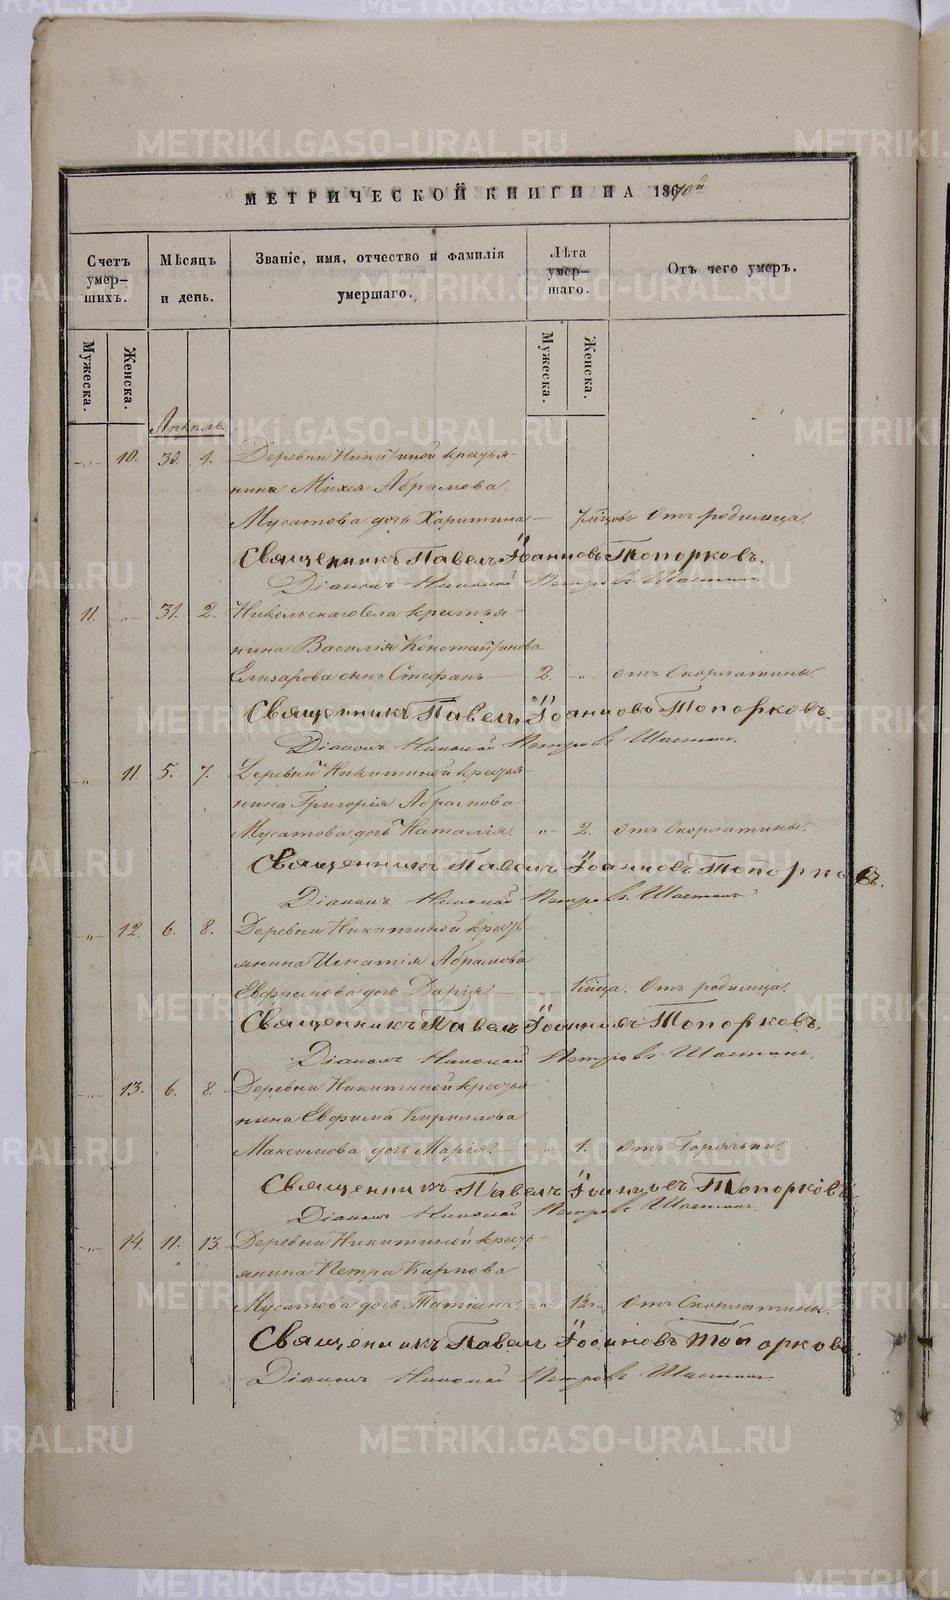 МЕТРИЧЕСКОЙ КНИГИ НА 1870й
Счетъ умер-шихъ.
Мѣсяцъ и день.
Званіе, имя, отчество и фамилія умершаго.
Лѣта умер-шаго.
Отъ чего умеръ.
Мужеска.
Женска.
Мужеска.
Женска.
Апрѣль.
„ 10. 30. 1. Деревни Никитиной крестья-
нина Михея Абрамова
Мусатова дочь Харитина — 7 Отъ родимца.
Священникъ Павелъ Іоанновъ Топорковъ.
Діаконъ Николай Петровъ
11. „ 31. 2. Никольскаго села крестья-
нина Василія Константинова
Елизарова сынъ Стефанъ — 2. „ отъ Скорлатины.
Священникъ Павелъ Іоанновъ Топорковъ.
Діаконъ Николай Петровъ
„ 11. 5. 7. Деревни Никитиной крестья-
нина Григорія Абрамова
Мусатова дочь Наталія. „ 2. отъ Скорлатины.
Священникъ Павелъ Іоанновъ Топорковъ.
Діаконъ Николай Петровъ
„ 12. 6. 8. Деревни Никитиной кресть-
янина Игнатія Абрамова
Ефремова дочь Дарія. Отъ родимца.
Священникъ Павелъ Іоанновъ Топорковъ.
Діаконъ Николай Петровъ
„ 13. 6. 8. Деревни Никитиной крестья-
нина Евфима Кирилова
Максимова дочь Марія. „ 1. отъ Горячьки.
Священникъ Павелъ Іоанновъ Топорковъ
Діаконъ Николай Петровъ
„ 14. 11. 13. Деревни Никитиной кресть-
янина Петра Карпова
Мусатова дочь Татіана. „ Отъ Скорлатины.
Священникъ Павелъ Іоанновъ Топорковъ.
Діаконъ Николай Петровъ
METRIKI.GASO-URAL.RU